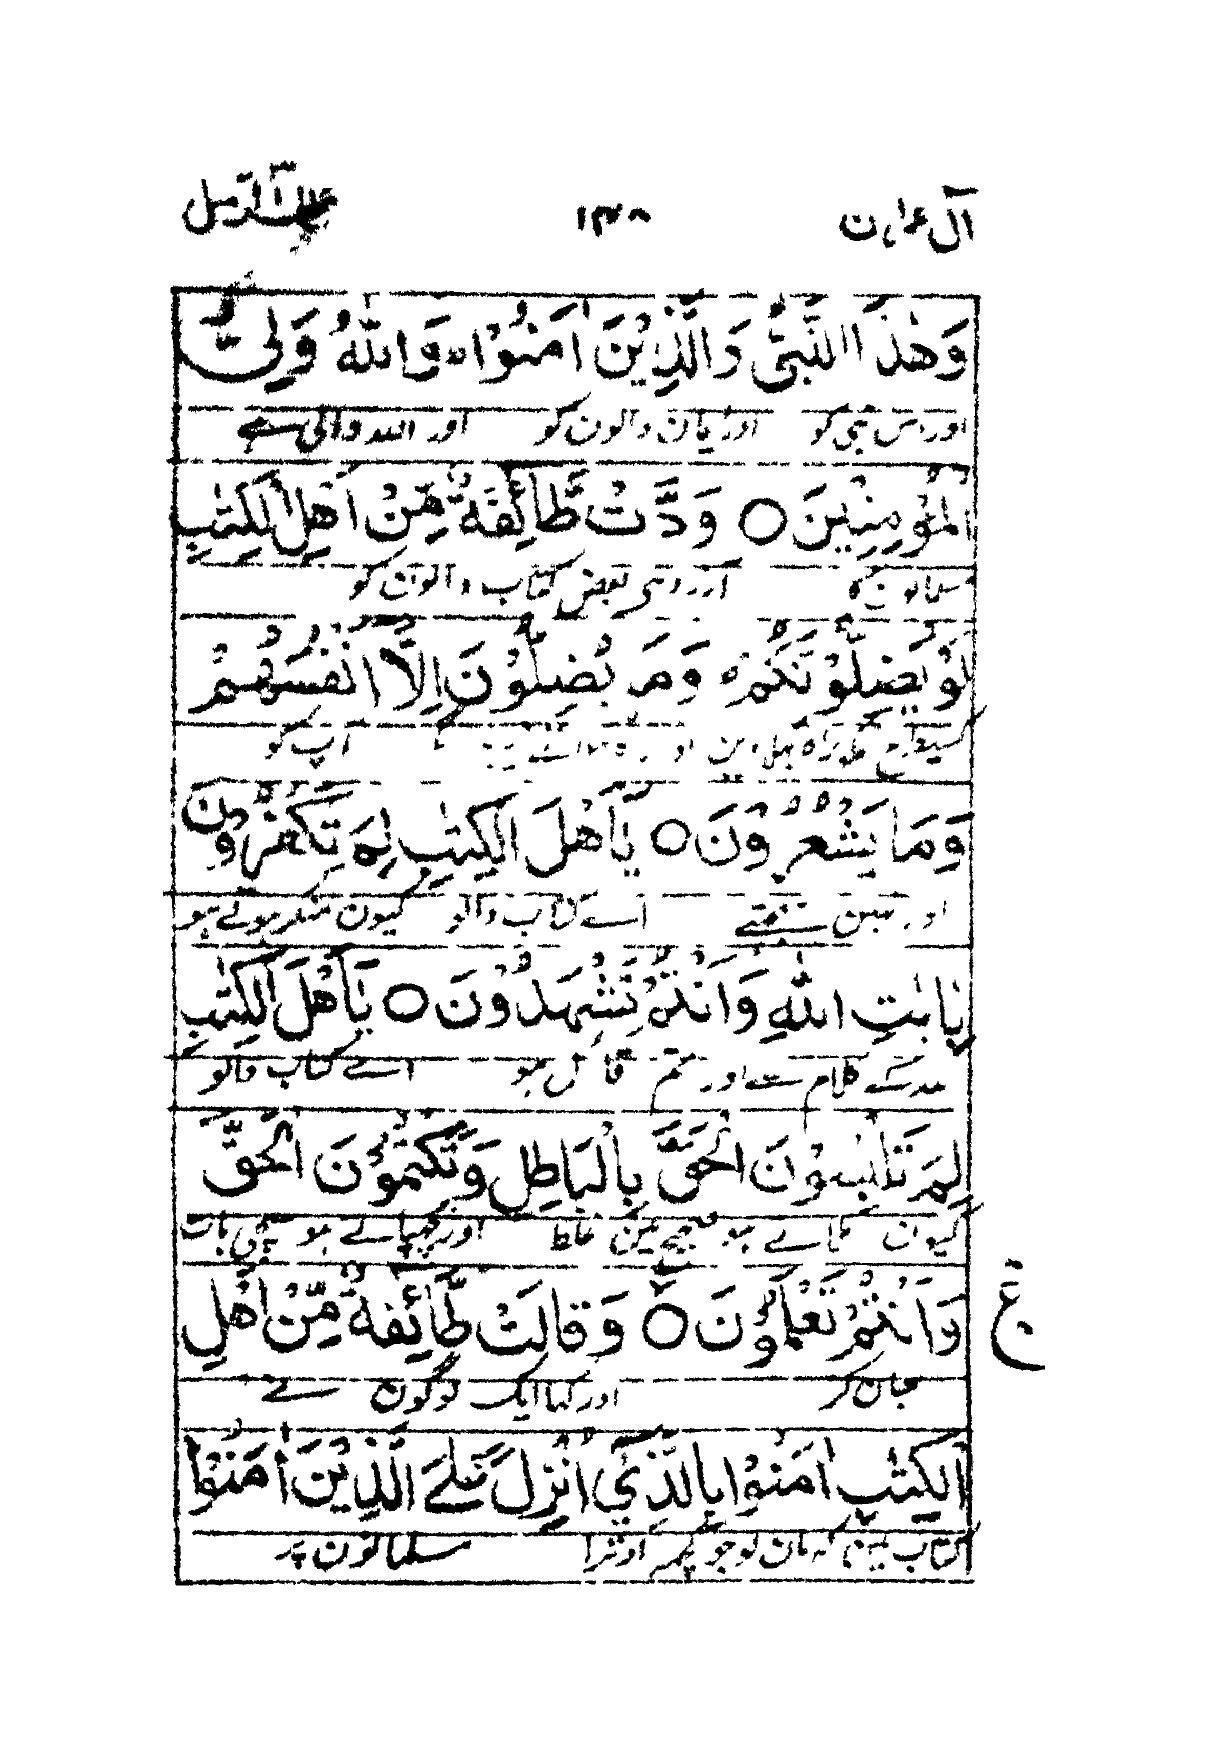 آل عمران ١٣٨ تلك الرسل
وَهٰذَا النَّبِيُّ وَالَّذِيْنَ اٰمَنُوْا ؕ وَاللّٰهُ وَلِيُّ
اور اس نبی کو اور ایمان والون کو اور اللہ والی ہے
الْمُؤْمِنِيْنَ ○ وَدَّتْ طَّآئِفَةٌ مِّنْ اَهْلِ الْكِتٰبِ
مسلمانون کا آرزو ہی بعض کتاب والون کو
لَوْ يُضِلُّوْنَكُمْ ؕ وَمَا يُضِلُّوْنَ اِلَّا اَنْفُسَهُمْ
کسیطرح آپ کو
وَمَا يَشْعُرُوْنَ ○ يٰاَهْلَ الْكِتٰبِ لِمَ تَكْفُرُوْنَ
اور نہین سمجھتے اے کتاب والو کیون منکر ہوتے ہو
بِاٰيٰتِ اللّٰهِ وَاَنْتُمْ تَشْهَدُوْنَ ○ يٰاَهْلَ الْكِتٰبِ
کے کلام سے اور تم قائل ہو اے کتاب والو
لِمَ تَلْبِسُوْنَ الْحَقَّ بِالْبَاطِلِ وَتَكْتُمُوْنَ الْحَقَّ
کیون ملاتے ہو صحیح مین غلط اور چھپاتے ہو سچی بات
وَاَنْتُمْ تَعْلَمُوْنَ ○ وَقَالَتْ طَّآئِفَةٌ مِّنْ اَهْلِ
ع
جان کر اور کہا ایک لوگون نے
الْكِتٰبِ اٰمِنُوْا بِالَّذِيْٓ اُنْزِلَ عَلَى الَّذِيْنَ اٰمَنُوْا
کتاب مین کہ مان لو جو کچھ اوترا مسلمانون پر